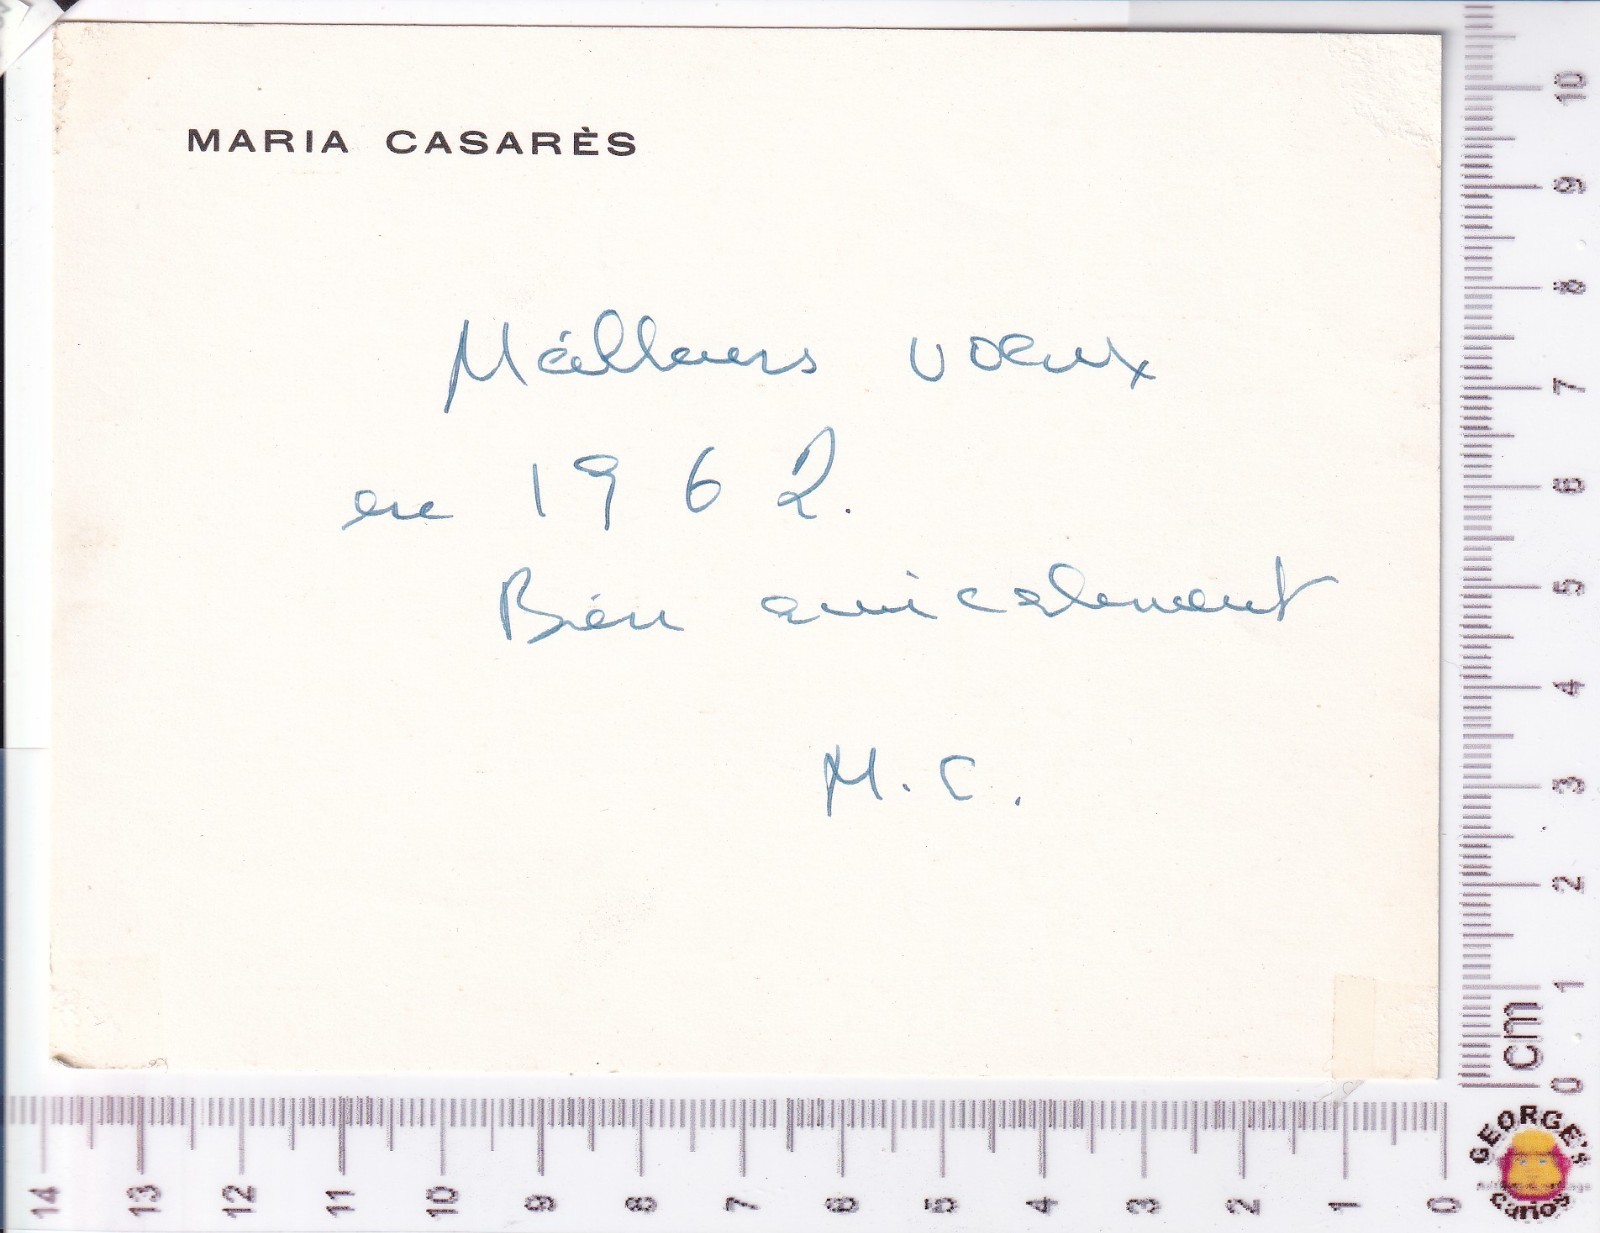 MARIA CASARÈS
Meilleurs voeux
en 1962.
Bien amicalement
M. C.
10
9
8
7
6
5
4
3
2
1
0
cm
14 13 12 11 10 9 8 7 6 5 4 3 2 1 0
GEORGE'S
Curios